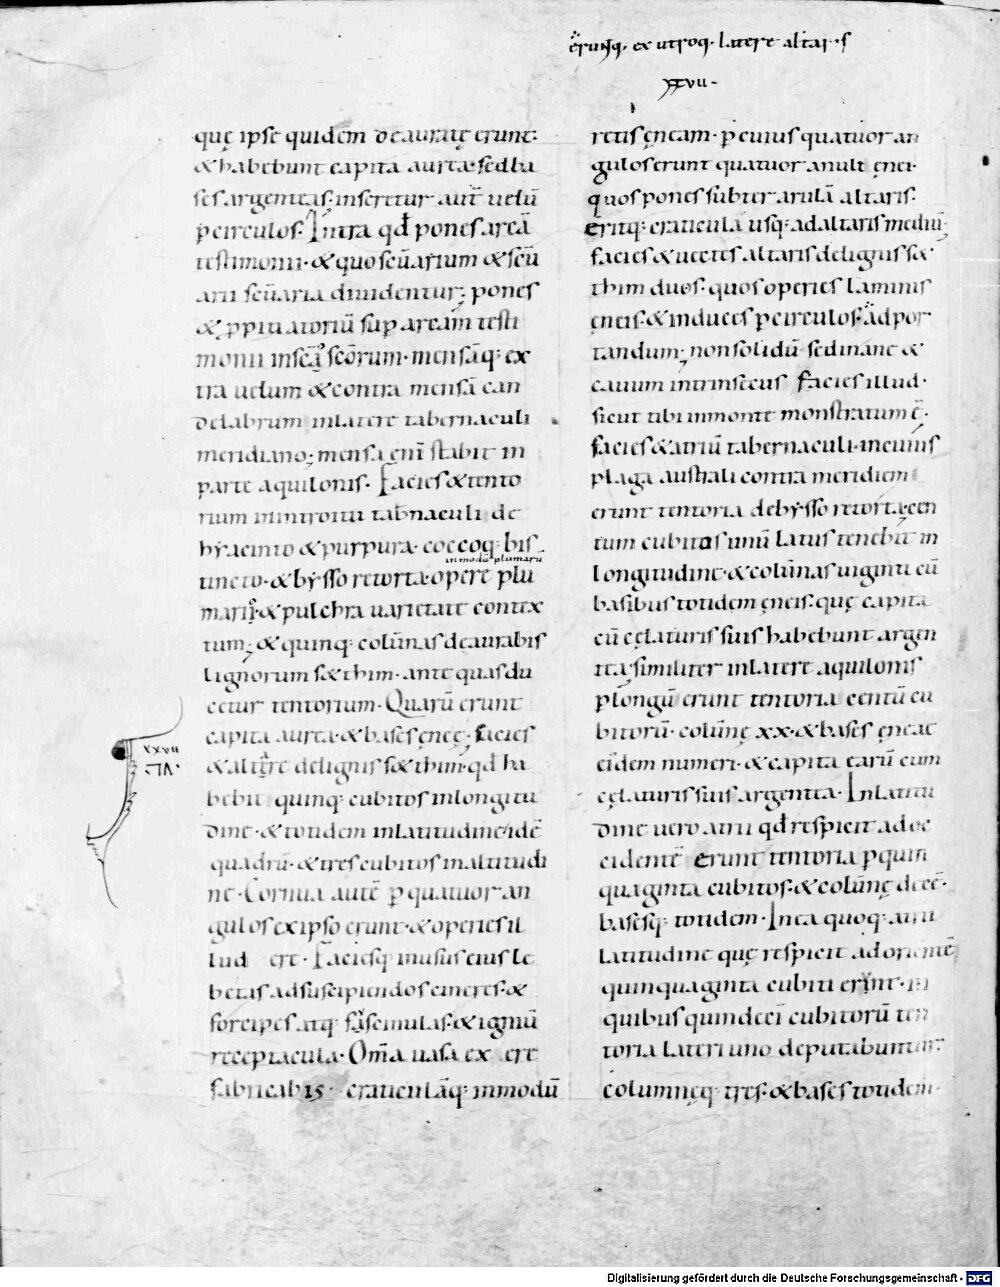 erunq; ex utroq; latere altaris
XXVII
quę ipse quidem deauratę erunt.
& habebunt capita aurea. sed ba
ses argenteas. inseretur aut uelū
p circulos. Intra qđ pones arcā
testimonii. & quo scūarium & scū
arii scūaria diuidentur; pones
& ppitiatoriū sup arcam testi
monii in scā scōrum. mensāq; ex
tra uelum & contra mensā can
delabrum in latere tabernaculi
meridiano; mensa enī stabit in
parte aquilonis. Facies & tento
rium in introitu tabnaculi de
hyacinto & purpura. coccoq; bis
in modū plumarii
tincto. & bysso retorta. opere plu
marii. & pulchra uarietate contex
tum; & quinq; colūnas deaurabis
lignorum sethim. ante quas du
cetur tentorium. Quarū erunt
capita aurea. & bases ęneę. Facies
& altare de lignis sethim. qđ ha
XXVII
bebit quinq; cubitos in longitu
dine. & totidem in latitudine. idē
quadrū. & tres cubitos in altitudi
ne. Cornua autē p quatuor an
gulos ex ipso erunt. & operies il
lud ere. Faciesq; in usus eius le
betas ad suscipiendos cineres. &
forcipes atq; fuscinulas. & igniū
receptacula. Omā uasa ex ere
fabricabis. craticulāq; in modū
retis ęneam. p cuius quatuor an
gulos erunt quatuor anuli ęnei.
quos pones subter arulā altaris.
Eritq; craticula usq; ad altaris mediū;
facies & uectes altaris de lignis se
thim duos. quos operies laminis
ęneis. & induces p circulos. ad por
tandum; non solidū. sed inane &
cauum intrinsecus facies illud.
sicut tibi in monte monstratum ē.
facies & atriū tabernaculi. in cuius
plaga australi contra meridiem
erunt tentoria de bysso retorta. cen
tum cubitos unū latus tenebit in
longitudine. & colūnas uiginti cū
basibus totidem ęneis. quę capita
cū cęlaturis suis habebunt argen
tea. similiter in latere aquilonis
p longū erunt tentoria centū cu
bitorū. colūnę XX. & bases ęneae
eidem numeri. & capita earū cum
cęlaturis suis argentea. In latitu
dine uero atrii qđ respicit ad oc
cidentē erunt tentoria p quin
quaginta cubitos. & colūnę decē.
basesq; totidem. In ea quoq; atrii
latitudine quę respicit ad orientē
quinquaginta cubiti erunt. in
quibus quindecī cubitorū ten
toria lateri uno deputabuntur.
columnęq; tres. & bases totidem.
Digitalisierung gefördert durch die Deutsche Forschungsgemeinschaft - DFG